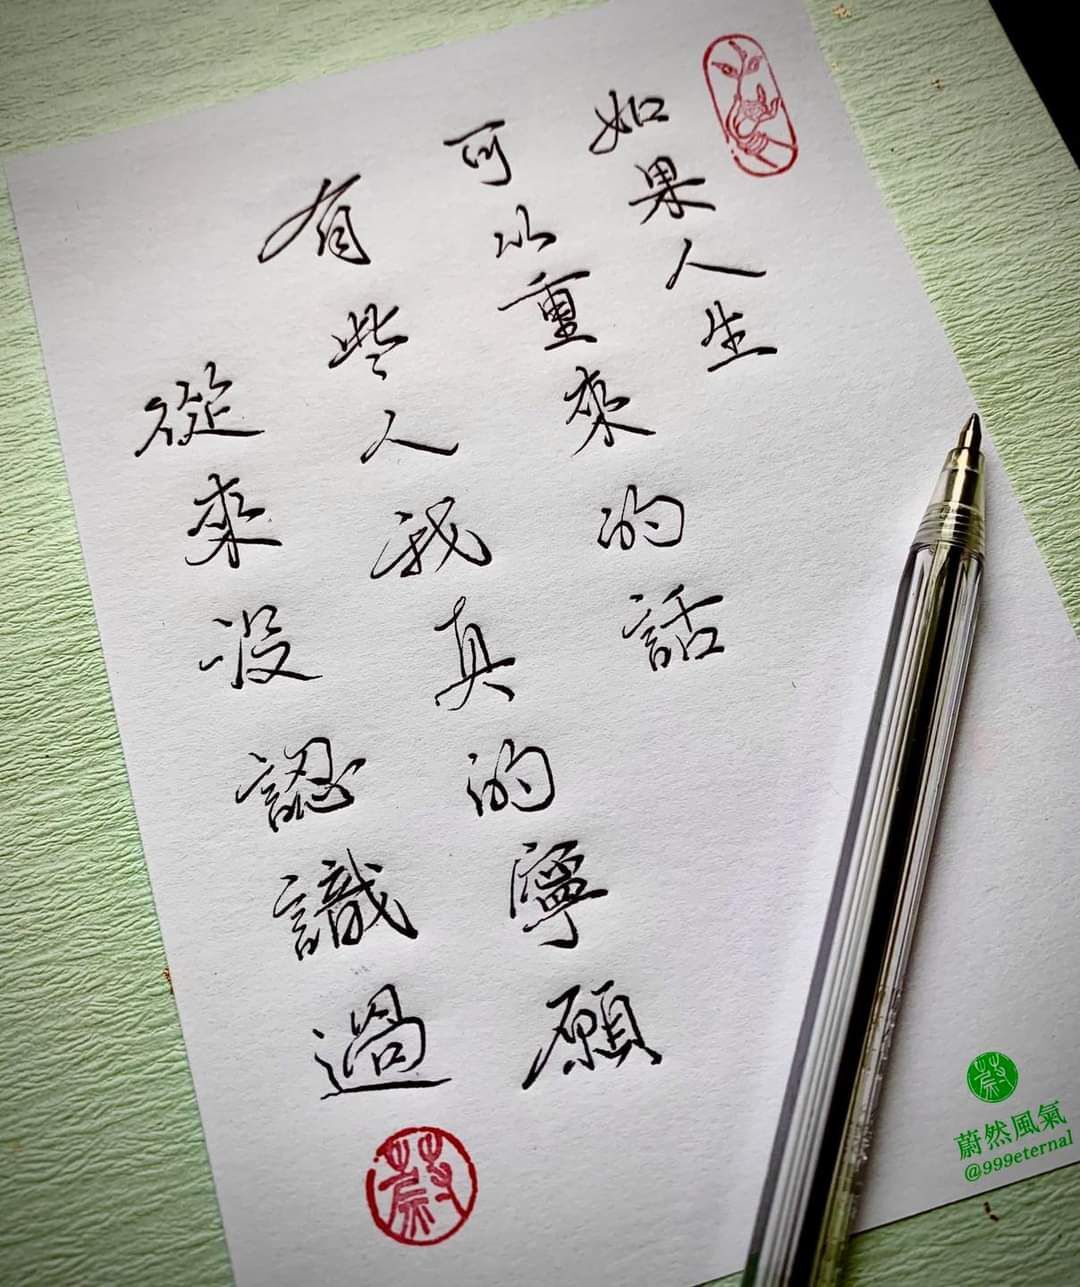 如果人生
可以重來的話
有些人我真的寧願
從來沒認識過
蔚
蔚
蔚然風氣
@999eternal